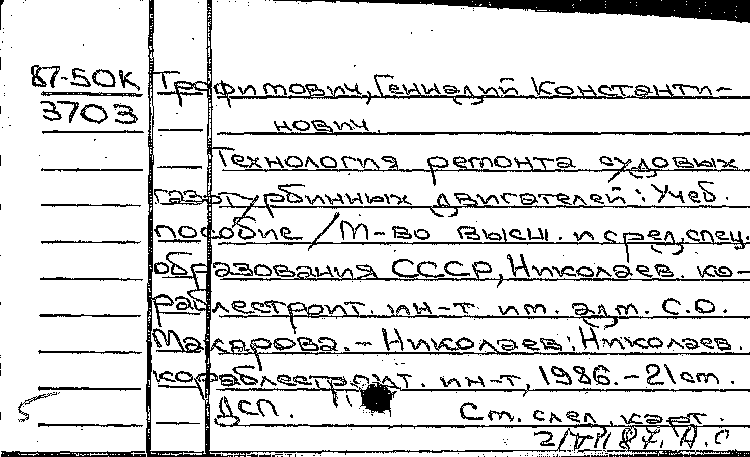 87-50К Трофимович, Геннадий Константи-
3703 нович.
Технология ремонта судовых
газотурбинных двигателей: Учеб.
пособие / М-во высш. и сред. спец.
образования СССР, Николаев. ко-
раблестроит. ин-т им. адм. С.О.
Макарова. - Николаев: Николаев.
кораблестроит. ин-т, 1986. - 21 см.
5 ДСП. См. след. карт.
2/VI 87. А.С